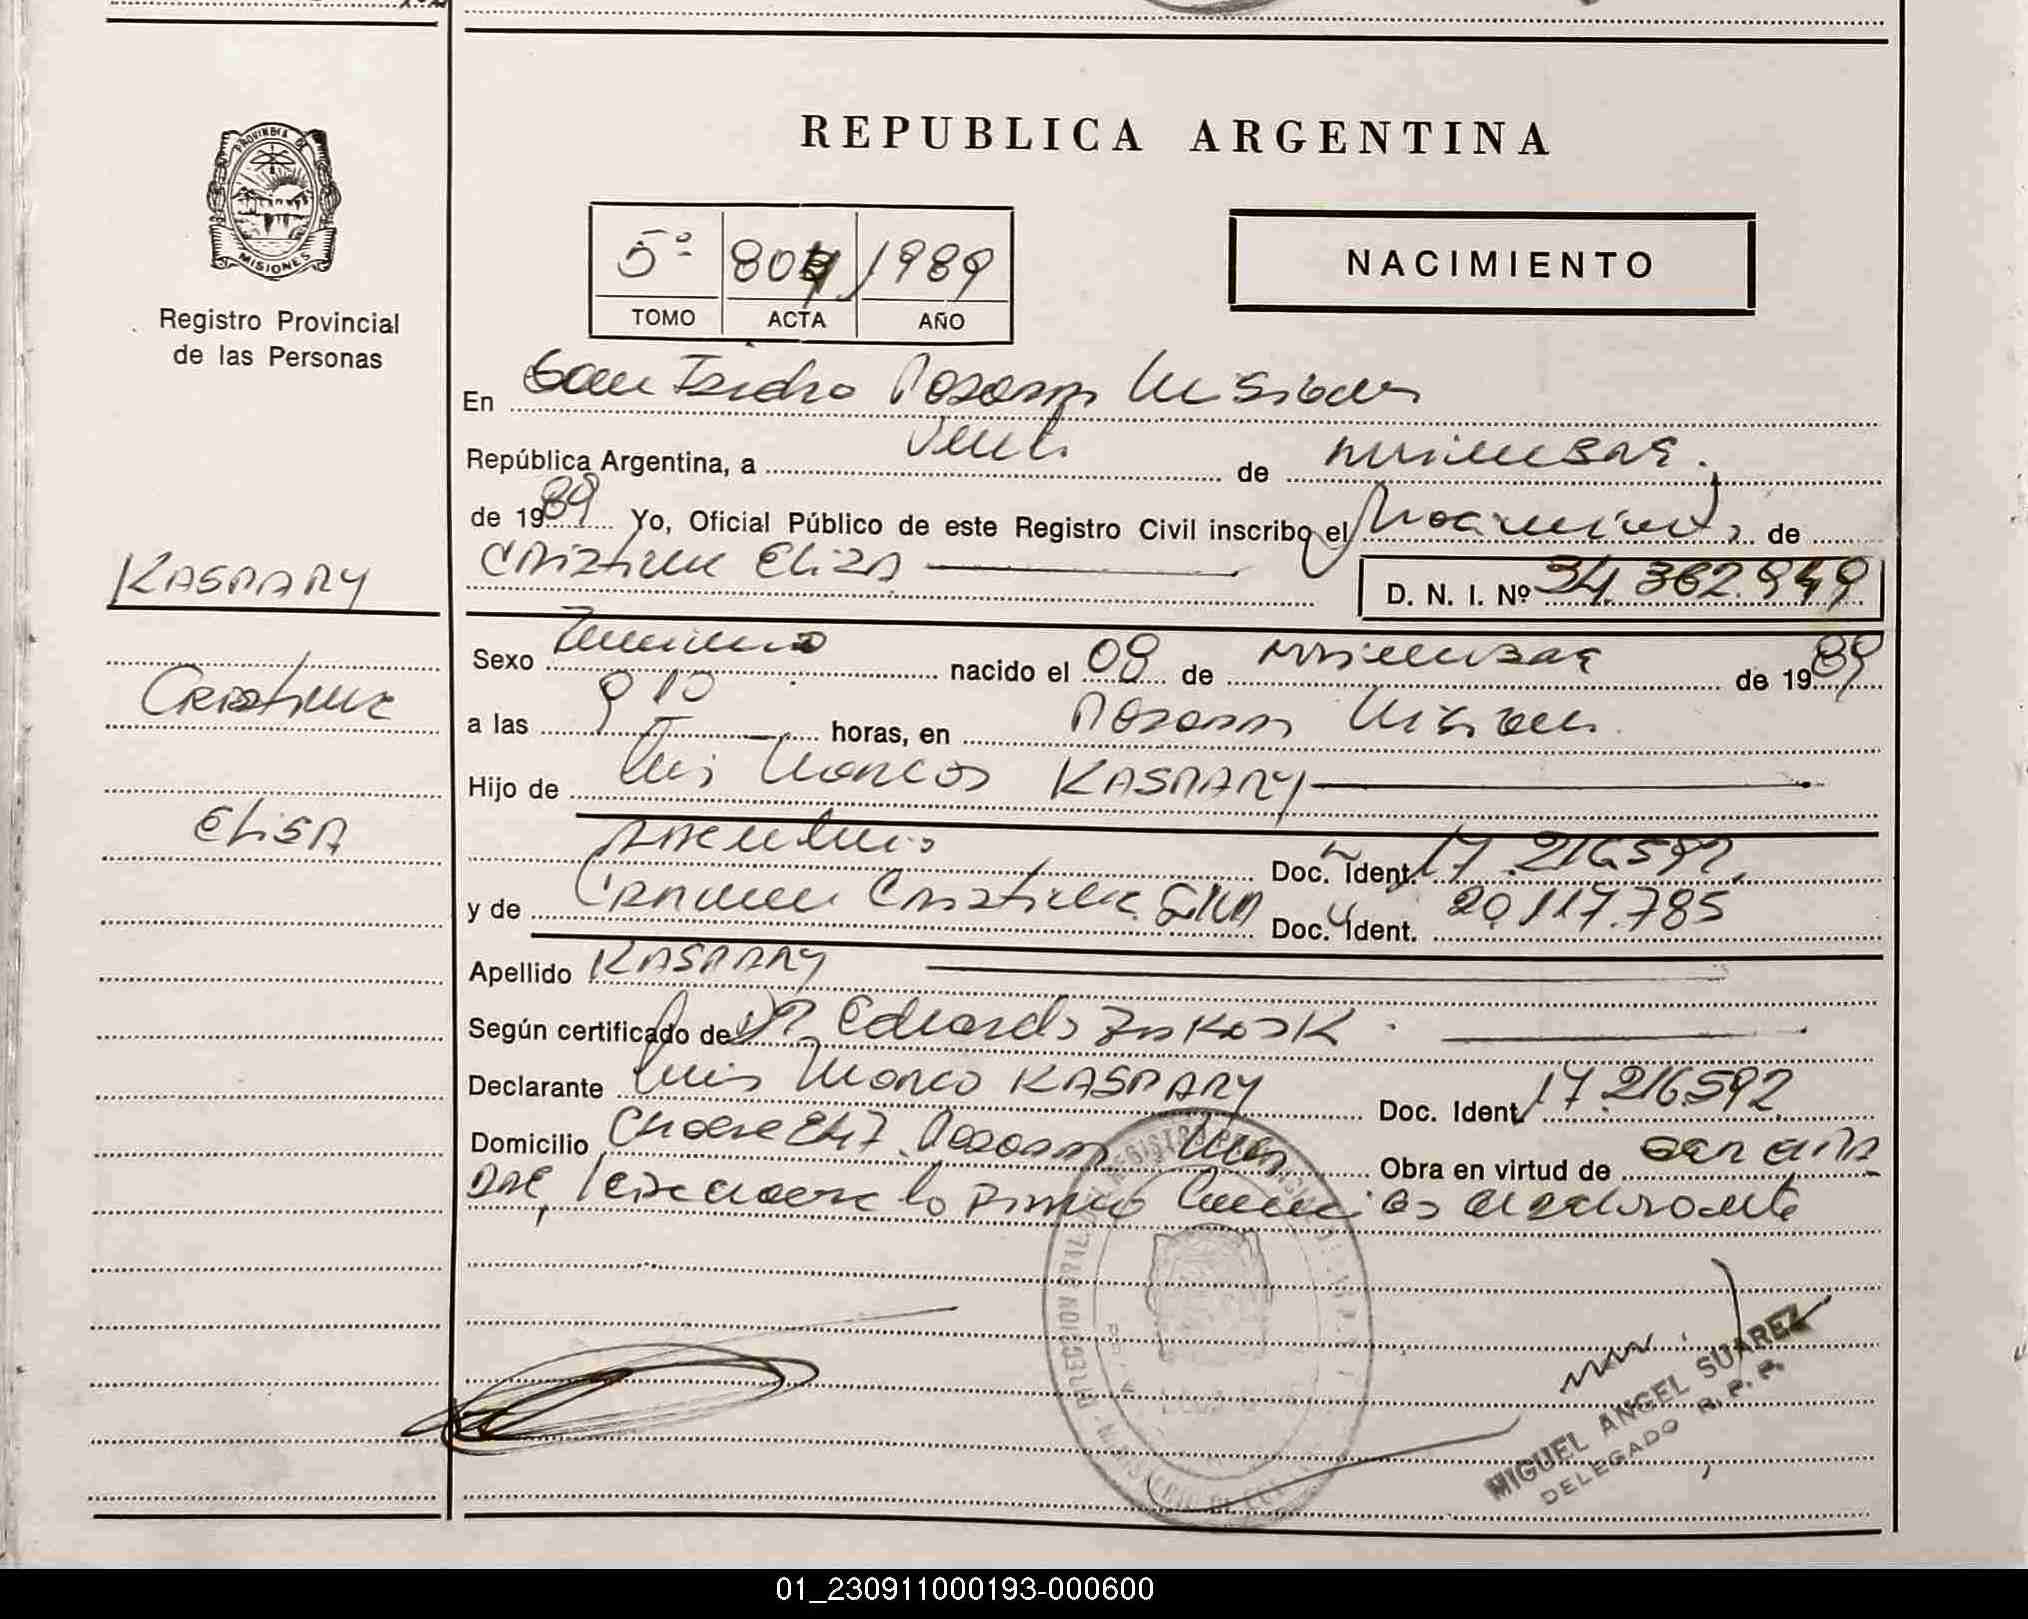 PROVINCIA DE
MISIONES
Registro Provincial
de las Personas
REPUBLICA ARGENTINA
5º 809 1989
TOMO ACTA AÑO
NACIMIENTO
En San Isidro Posadas Misiones
República Argentina, a Veinte de Diciembre
de 1989 Yo, Oficial Público de este Registro Civil inscribo el Nacimiento de
Cristina Elisa
D. N. I. Nº 34.362.949
KASPARY
Cristina
Elisa
Sexo Femenino nacido el 08 de Diciembre de 1989
a las 9 10 horas, en Posadas Misiones
Hijo de Luis Marcos KASPARY
Argentino Doc. Ident. 17.216.592
y de Carmen Cristina Silva Doc. Ident. 20.117.785
Apellido KASPARY
Según certificado de Dr Eduardo
Declarante Luis Marcos KASPARY Doc. Ident 17.216.592
Domicilio Posadas Obra en virtud de
lo firma declarante
MIGUEL ANGEL SUAREZ
DELEGADO R. P. P.
01_230911000193-000600